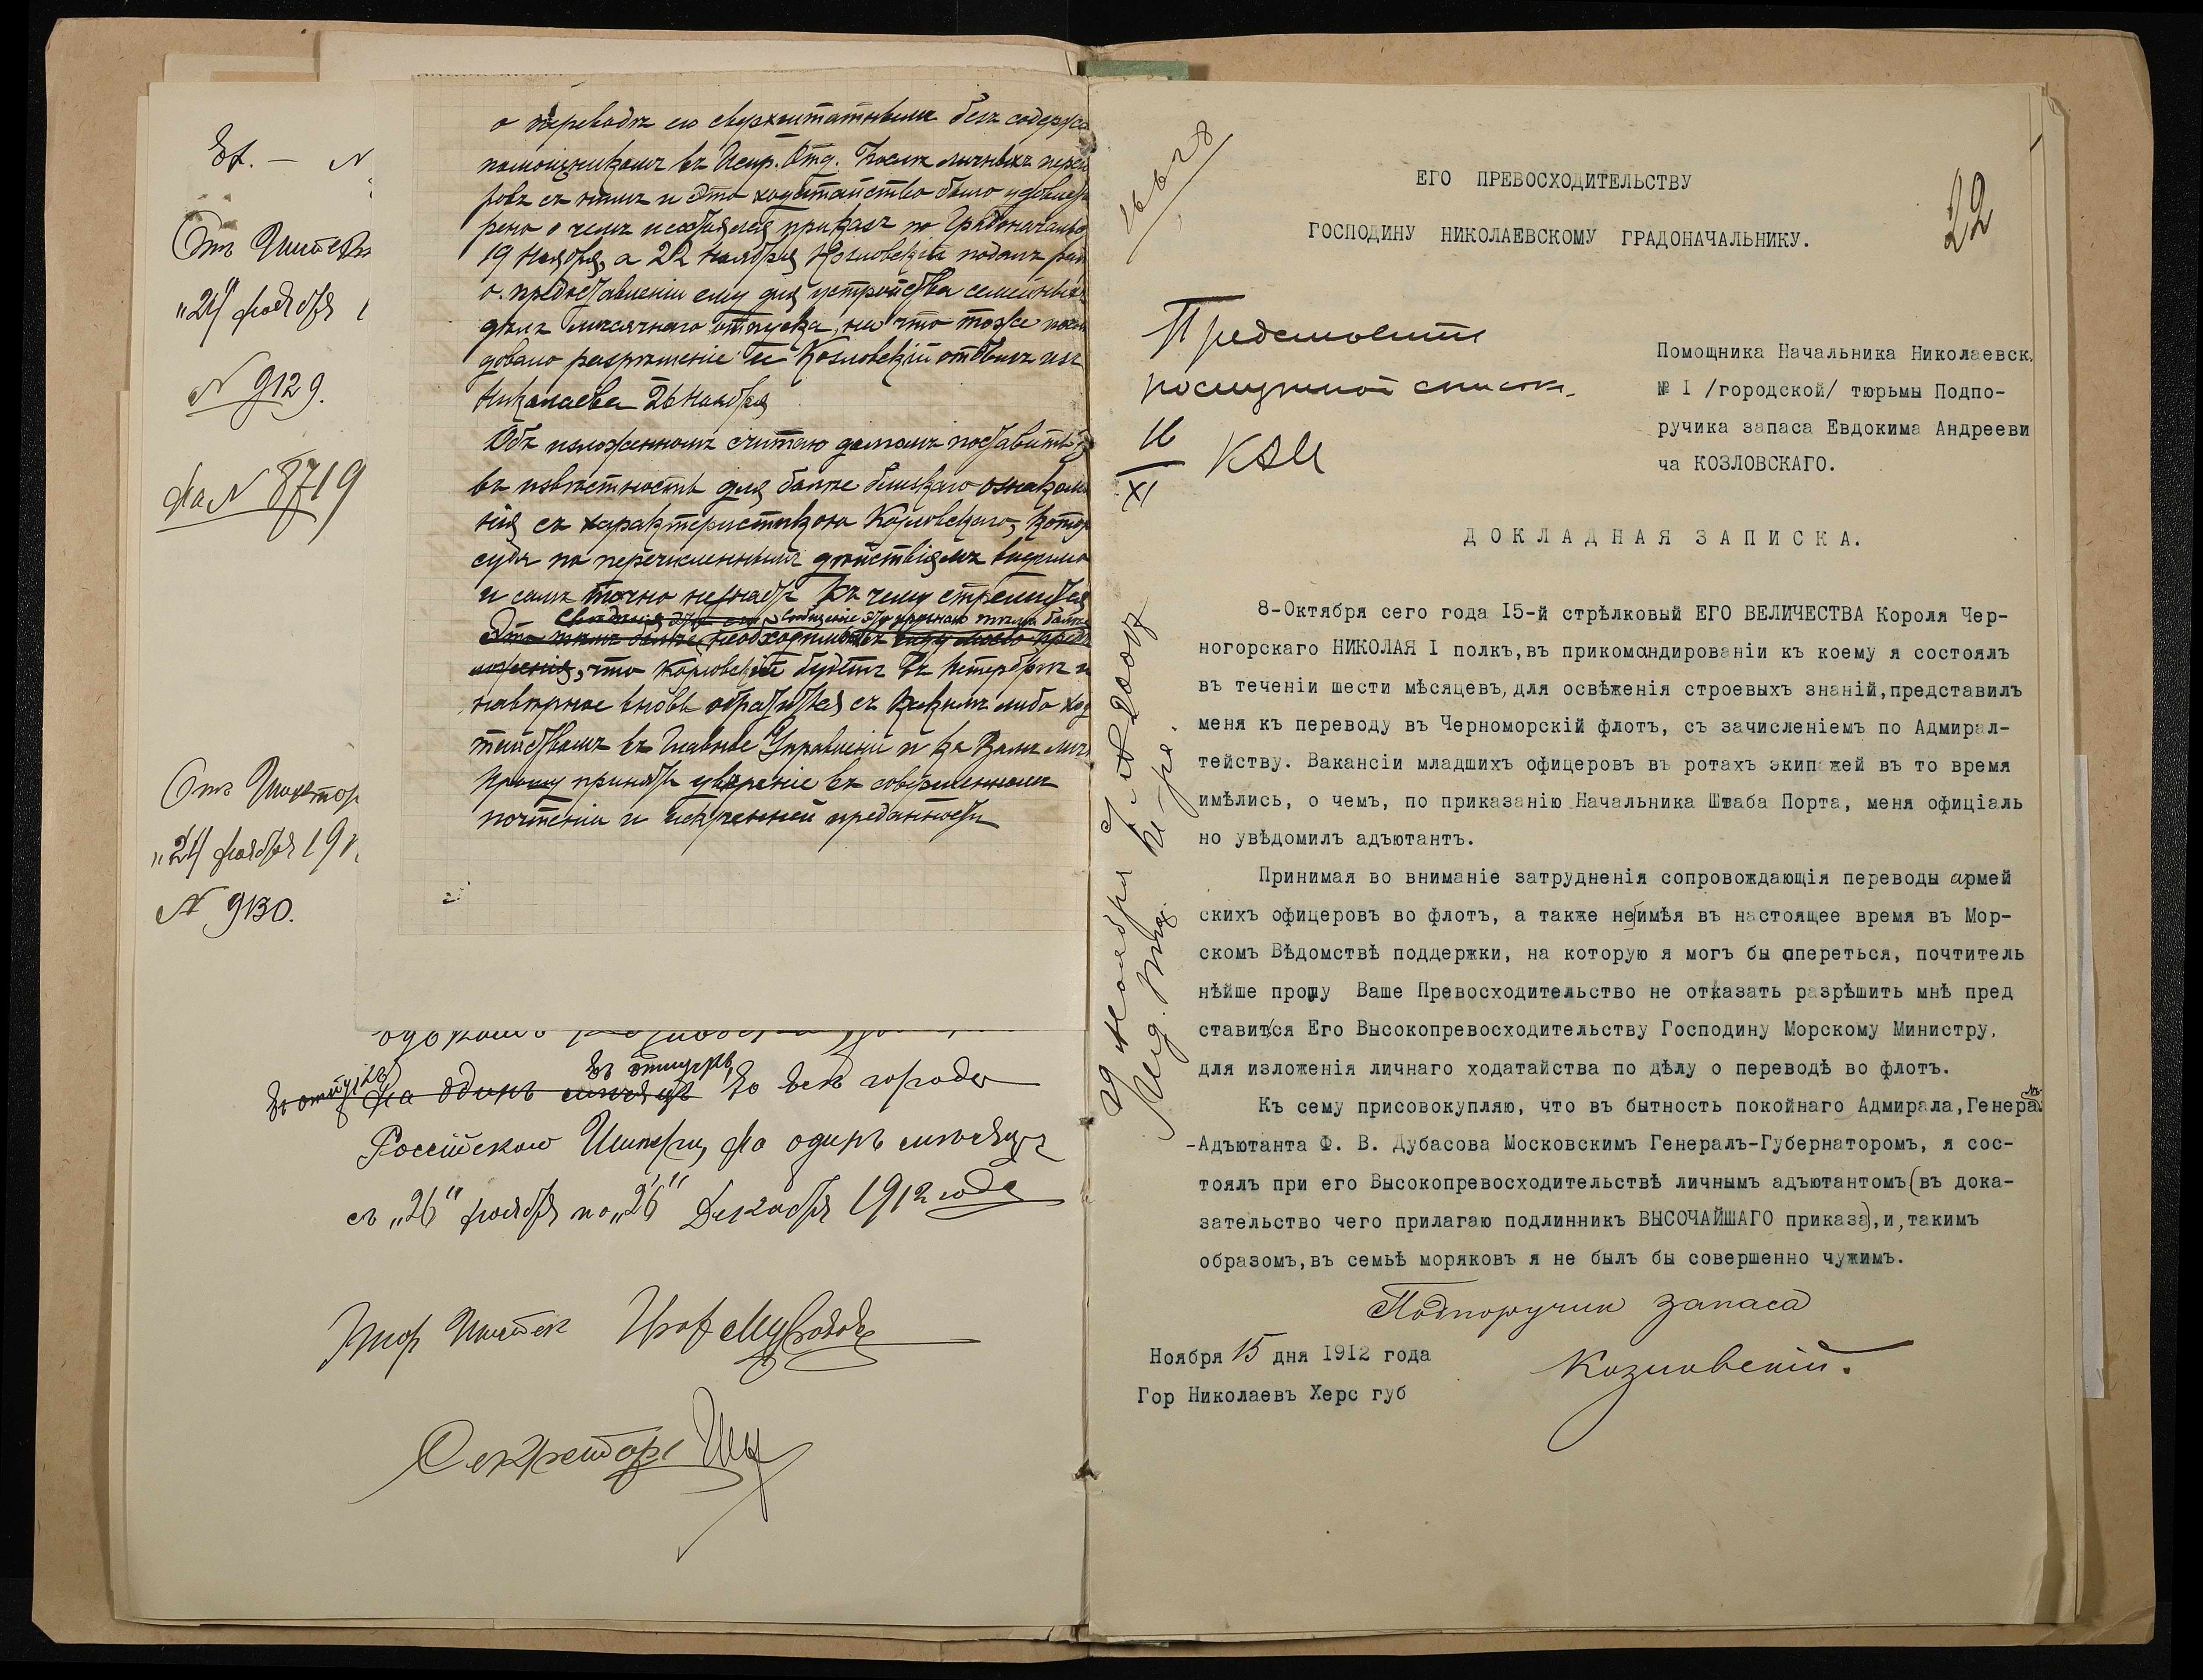 Отъ Инспек
"24" ноября 1
№ 9129.
На № 8719
Отъ Инспектор
"24" ноября 191
№ 9130.
о переводѣ его сверхштатнымъ безъ содержа
помощникомъ въ Испр. Отд. Послѣ личныхъ перего
ровъ съ нимъ и это ходатайство было удовлетв
рено о чемъ состоялся приказъ по Градоначальс
19 Ноября, а 22 Ноября Козловскій подалъ рап
о предоставленіи ему для устройства семейныхъ
дѣлъ мѣсячнаго отпуска, на что тоже послѣ
довало разрѣшеніе и Козловскій отбылъ изъ
Николаева 26 Ноября
Объ изложенномъ считаю долгомъ поставить
въ извѣстность для болѣе близкаго ознаком
нія съ характеристикою Козловскаго, котор
судя по перечисленнымъ дѣйствіямъ видимо
и самъ точно не знаетъ къ чему стремится
что Козловскій будетъ въ Петербургѣ и
навѣрное вновь обратится съ какимъ либо ход
тайствомъ въ Главное Управленіе и къ Вамъ лич
Прошу принять увѣреніе въ совершенномъ
почтеніи и искренней преданности
въ отпускъ
въ отпускъ на одинъ мѣсяцъ во всѣ города
Россійской Имперіи, на одинъ мѣсяцъ
съ "26" ноября по "26" Декабря 1912 года
Секретарь
22
ЕГО ПРЕВОСХОДИТЕЛЬСТВУ
ГОСПОДИНУ НИКОЛАЕВСКОМУ ГРАДОНАЧАЛЬНИКУ.
Представить
послужной списокъ.
16
XI
Помощника Начальника Николаевск.
№ I /городской/ тюрьмы Подпо-
ручика запаса Евдокима Андрееви
ча КОЗЛОВСКАГО.
ДОКЛАДНАЯ ЗАПИСКА.
8-Октября сего года I5-й стрѣлковый ЕГО ВЕЛИЧЕСТВА Короля Чер-
ногорскаго НИКОЛАЯ I полкъ,въ прикомандированіи къ коему я состоялъ
въ теченіи шести мѣсяцевъ,для освѣженія строевыхъ знаній,представилъ
меня къ переводу въ Черноморскій флотъ, съ зачисленіемъ по Адмирал-
тейству. Вакансіи младшихъ офицеровъ въ ротахъ экипажей въ то время
имѣлись, о чемъ, по приказанію Начальника Штаба Порта, меня офиціаль
но увѣдомилъ адъютантъ.
Принимая во вниманіе затрудненія сопровождающія переводы армей
скихъ офицеровъ во флотъ, а также не имѣя въ настоящее время въ Мор-
скомъ Вѣдомствѣ поддержки, на которую я могъ бы опереться, почтитель
нѣйше прошу Ваше Превосходительство не отказать разрѣшить мнѣ пред
ставится Его Высокопревосходительству Господину Морскому Министру,
для изложенія личнаго ходатайства по дѣлу о переводѣ во флотъ.
Къ сему присовокупляю, что въ бытность покойнаго Адмирала,Генералъ
-Адъютанта Ф. В. Дубасова Московскимъ Генералъ-Губернаторомъ, я сос-
тоялъ при его Высокопревосходительствѣ личнымъ адъютантомъ(въ дока-
зательство чего прилагаю подлинникъ ВЫСОЧАЙШАГО приказа),и,такимъ
образомъ,въ семьѣ моряковъ я не былъ бы совершенно чужимъ.
Подпоручик запаса
Козловскій.
Ноября 15 дня I9I2 года
Гор Николаевъ Херс губ